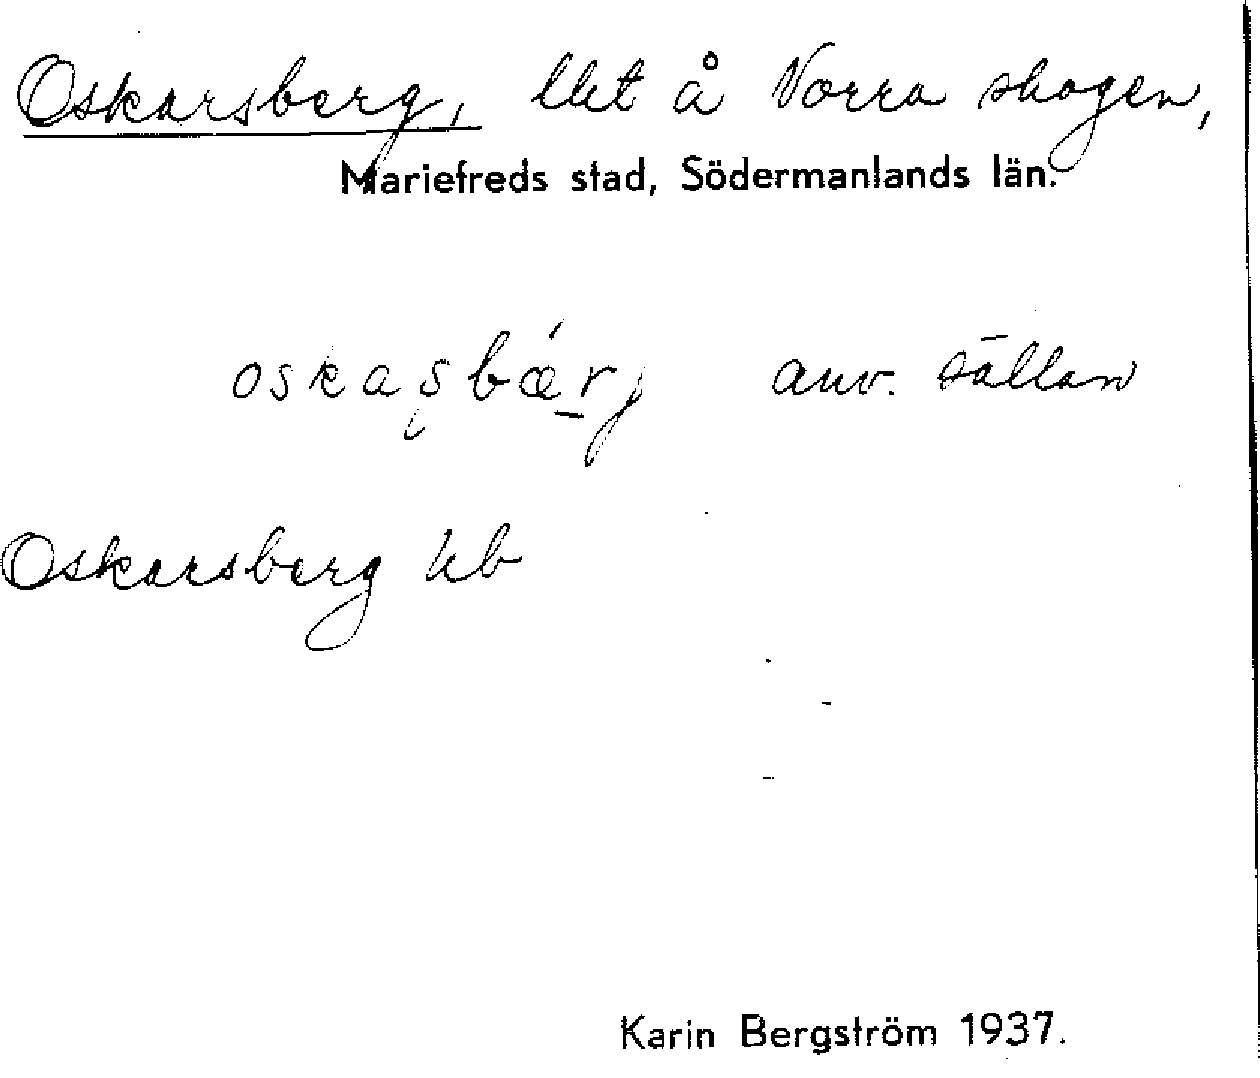 Oskarsberg, lht å Norra skogen,
Mariefreds stad, Södermanlands län.
oskaʂbǽ̱rj anv. sällan
Oskarsberg hb
Karin Bergström 1937.